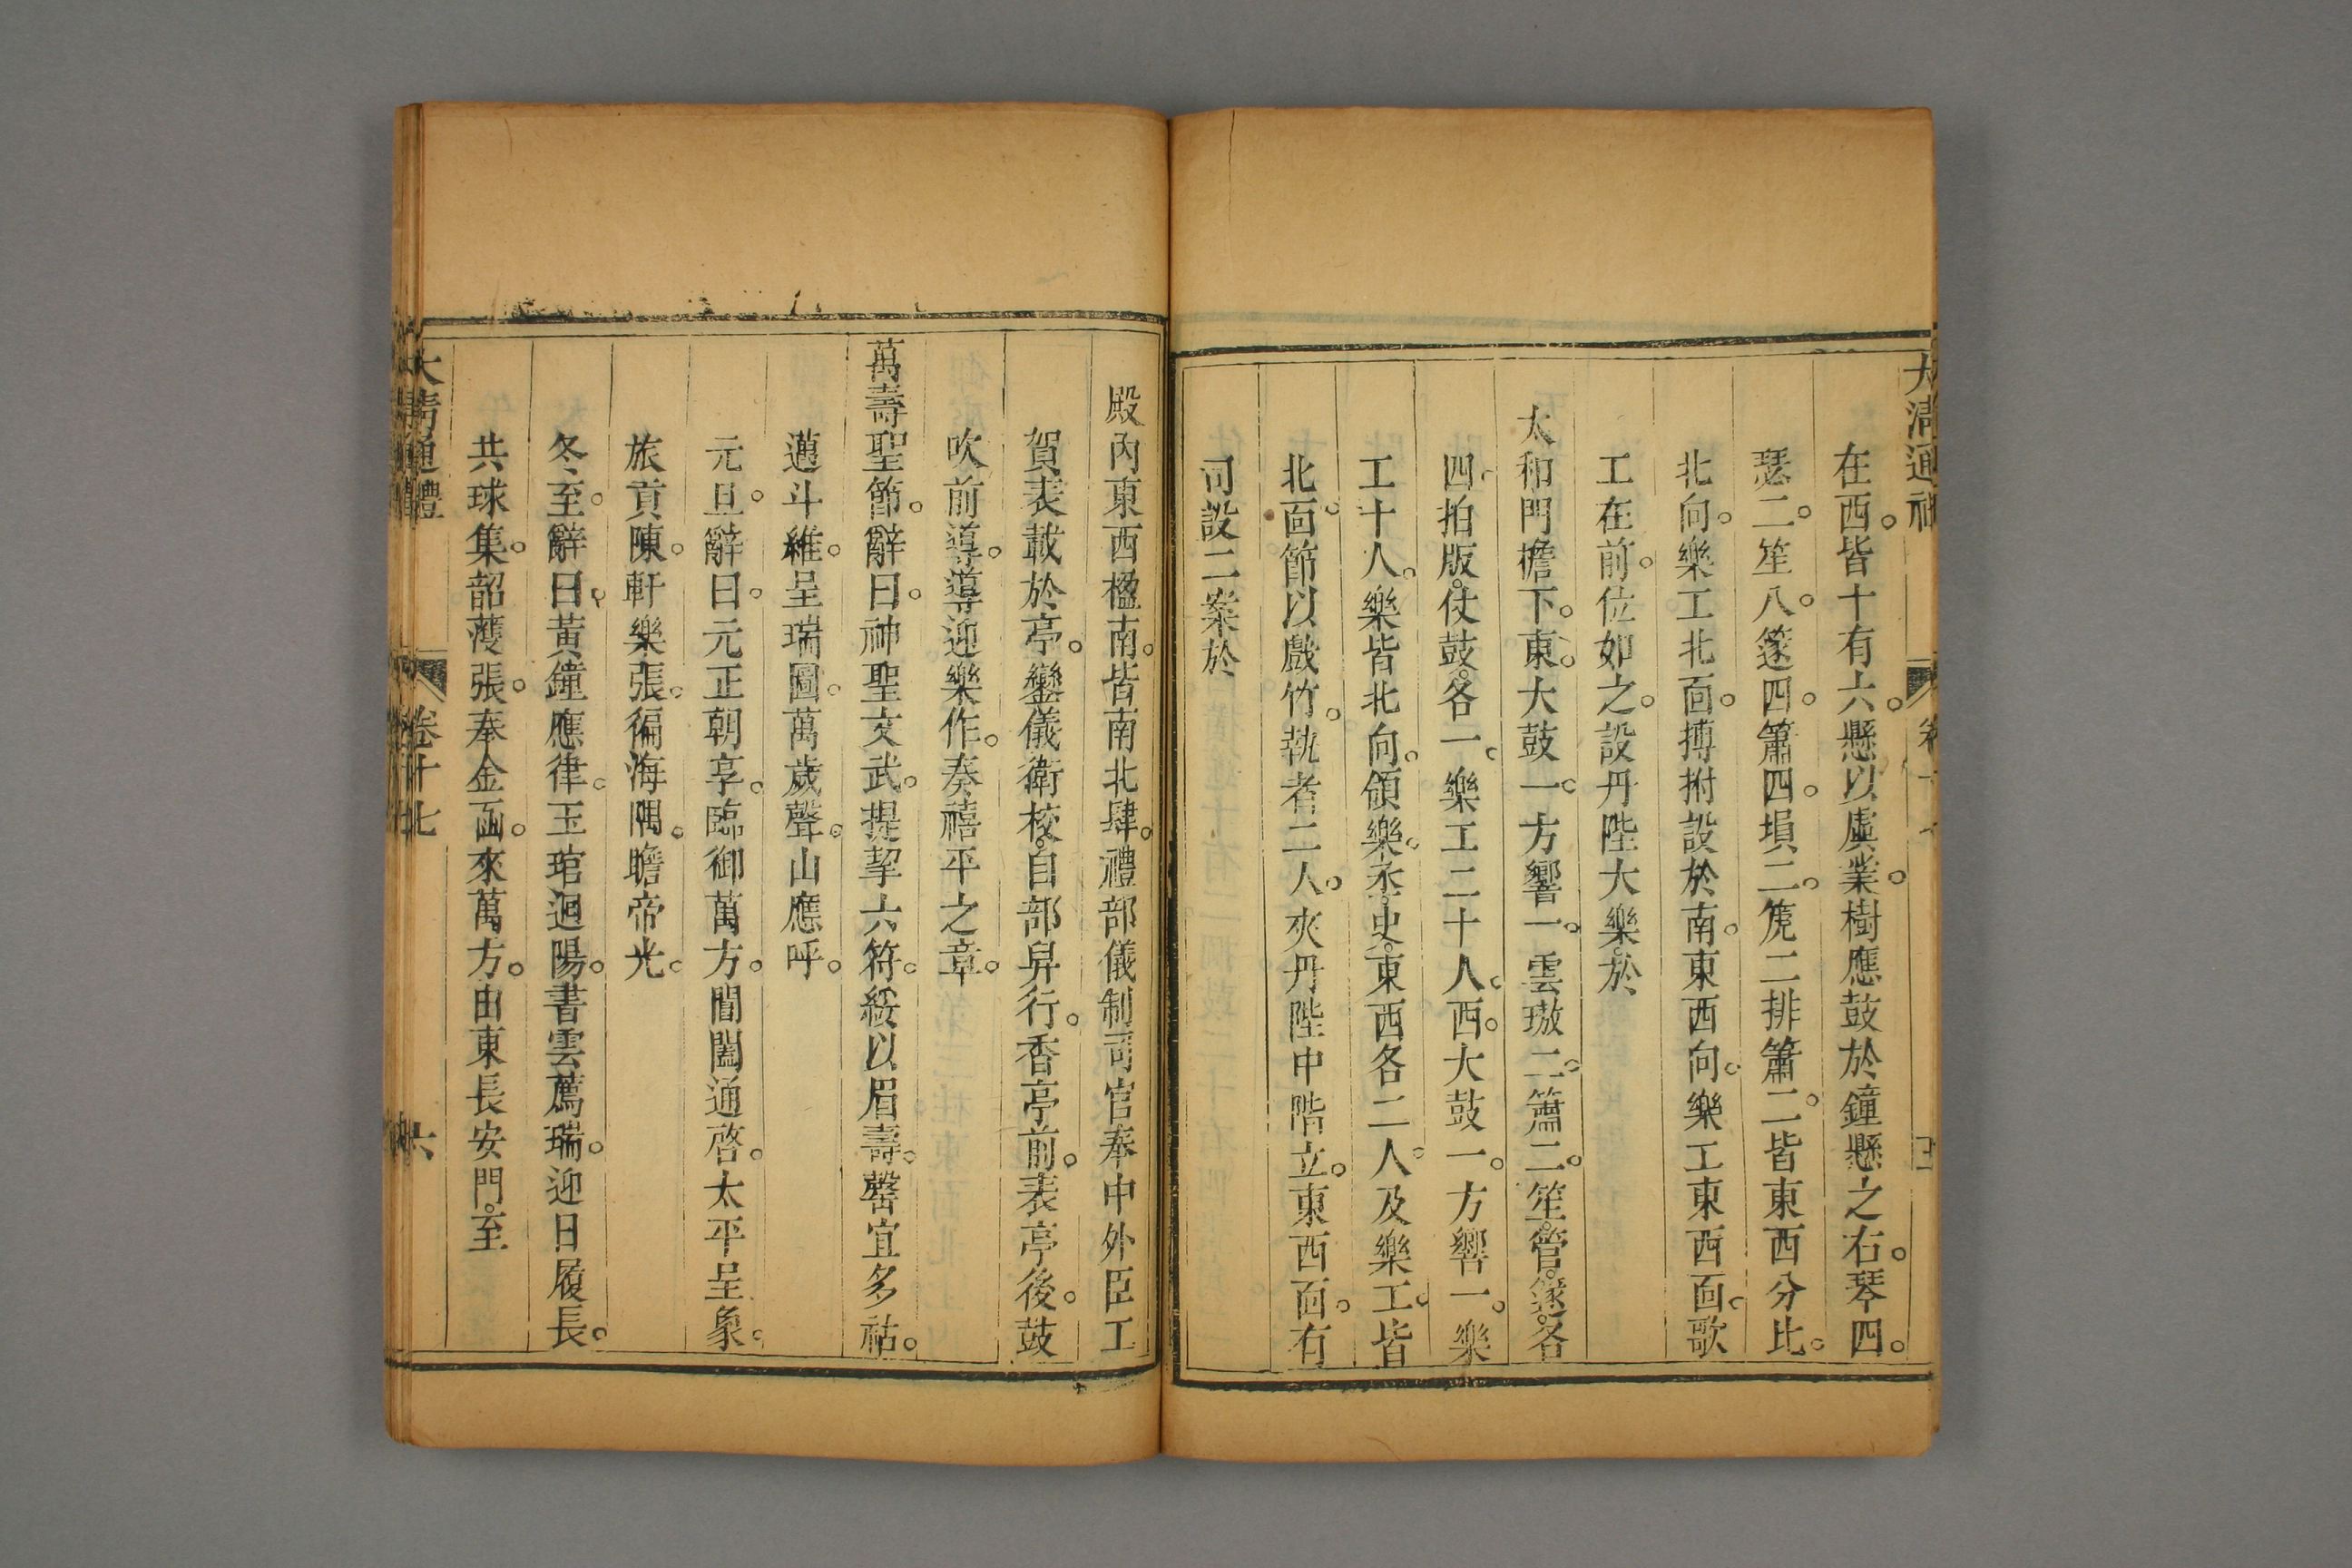 在西。皆十有六。懸以虡業。樹應鼓於鐘懸之右。琴四。
瑟二。笙八。篴四。簫四。塤二。箎二排簫二。皆東西分比。
北向。樂工北面。搏拊設於南。東西向。樂工東西面。歌
工在前。位如之。設丹陛大樂。於
太和門檐下。東。大鼓一。方響一。雲璈二。簫二。笙。管。篴。各
四。拍版。仗鼓。各一。樂工二十人。西。大鼓一。方響一。樂
工十人。樂皆北向。領樂。丞。史。東西各二人。及樂工。皆
北面。節以戲竹。執者二人。夾丹陛中階立。東西面。有
司設二案於
大清通禮
卷十七
殿內東西楹南。皆南北肆。禮部儀制司官奉中外臣工
賀表載於亭。鑾儀衛校。自部舁行。香亭前。表亭後。鼓
吹前導。導迎樂作。奏禧平之章。
萬壽聖節。辭曰。神聖文武。提挈六符。綏以眉壽。罄宜多祜。
邁斗維。呈瑞圖。萬歲聲。山應呼。
元旦。辭曰。元正朝享。臨御萬方。閶闔通啓。太平呈象。
旅貢陳。軒樂張。徧海隅。瞻帝光。
冬至。辭曰。黃鐘應律。玉琯迴陽。書雲薦瑞。迎日履長。
共球集。韶濩張。奉金函。來萬方。由東長安門。至
大清通禮
卷十七
六